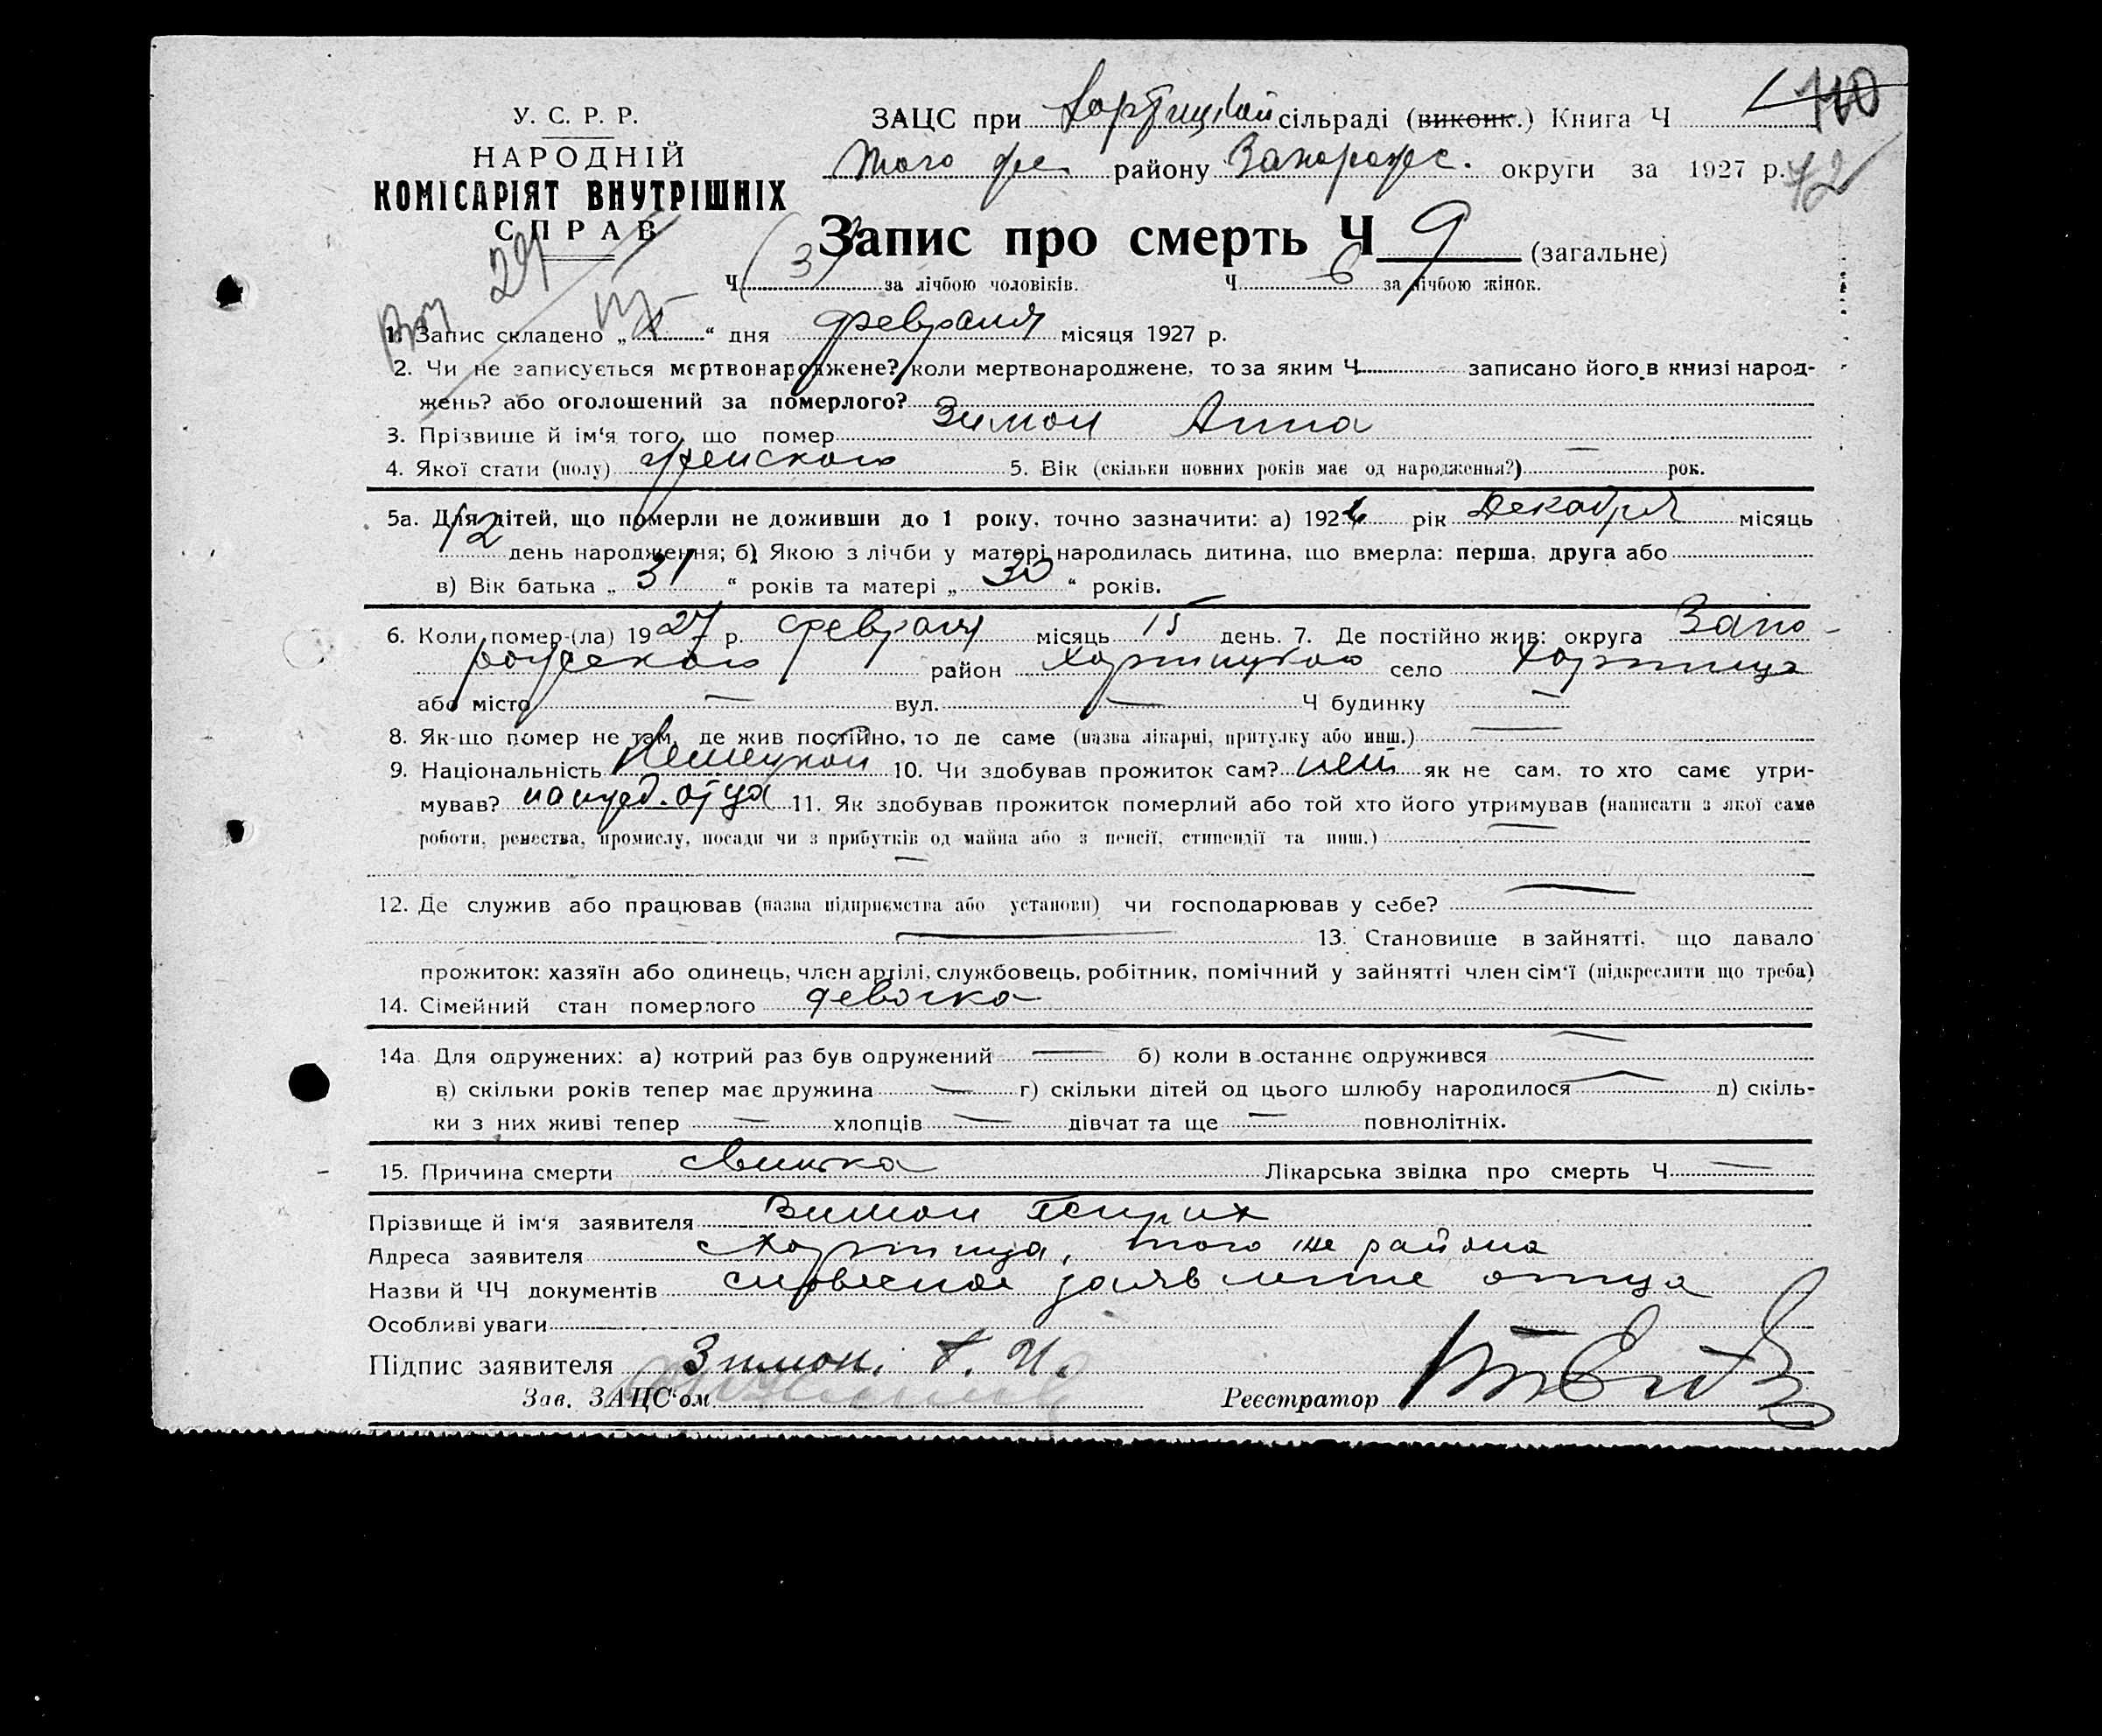 У. С. Р. Р.
НАРОДНІЙ
КОМІСАРІЯТ ВНУТРІШНІХ
СПРАВ
ЗАЦС при Хортицкой сільраді (виконк.) Книга Ч 110
того же району Запорожс. округи за 1927 р. 42
Запис про смерть Ч 9 (загальне)
Ч 3 за лічбою чоловіків. Ч 6 за лічбою жінок.
29
1. Запис складено „ “ дня февраля місяця 1927 р.
2. Чи не записується мертвонароджене? коли мертвонароджене, то за яким Ч записано його в книзі народ-
жень? або оголошений за померлого?
3. Прізвище й ім'я того, що помер Зимон Анна
4. Якої стати (полу) женского 5. Вік (скільки повних років має од народження?) — рок.
5а. Для дітей, що померли не доживши до 1 року, точно зазначити: а) 1926 рік Декабря місяць
12 день народження; б) Якою з лічби у матері народилась дитина, що вмерла: перша, друга або
в) Вік батька „ 31 “ років та матері „ 30 “ років.
6. Коли помер-(ла) 1927 р. февраля місяць 15 день. 7. Де постійно жив: округа Запо-
рожского район Хортицкого село Хортица
або місто — вул. — Ч будинку —
8. Як-що помер не там, де жив постійно, то де саме (назва лікарні, притулку або инш.) —
9. Національність Немецкой 10. Чи здобував прожиток сам? нет як не сам, то хто саме утри-
мував? отца 11. Як здобував прожиток померлий або той хто його утримував (написати з якої саме
роботи, ремества, промислу, посади чи з прибутків од майна або з пенсії, стипендії та инш.) —
—
12. Де служив або працював (назва підприємства або установи) чи господарював у себе? —
— 13. Становище в зайнятті, що давало
прожиток: хазяїн або одинець, член артілі, службовець, робітник, помічний у зайнятті член сім'ї (підкреслити що треба)
14. Сімейний стан померлого девочка
14а. Для одружених: а) котрий раз був одружений — б) коли в останнє одружився —
в) скільки років тепер має дружина — г) скільки дітей од цього шлюбу народилося — д) скіль-
ки з них живі тепер — хлопців — дівчат та ще — повнолітніх.
15. Причина смерти свинка Лікарська звідка про смерть Ч —
Прізвище й ім'я заявителя Зимон Генрих
Адреса заявителя Хортица, того же района
Назви й ЧЧ документів словесное заявление отца
Особливі уваги
Підпис заявителя Зимон. Г. И.
Зав. ЗАЦС'ом Реєстратор